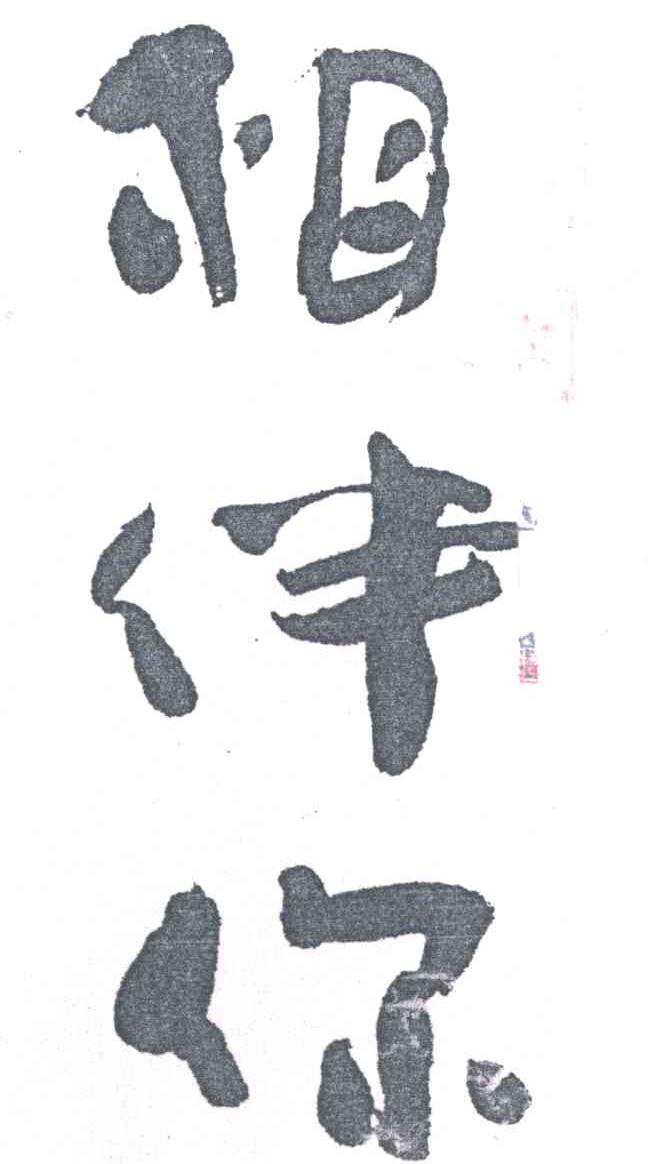 相伴你